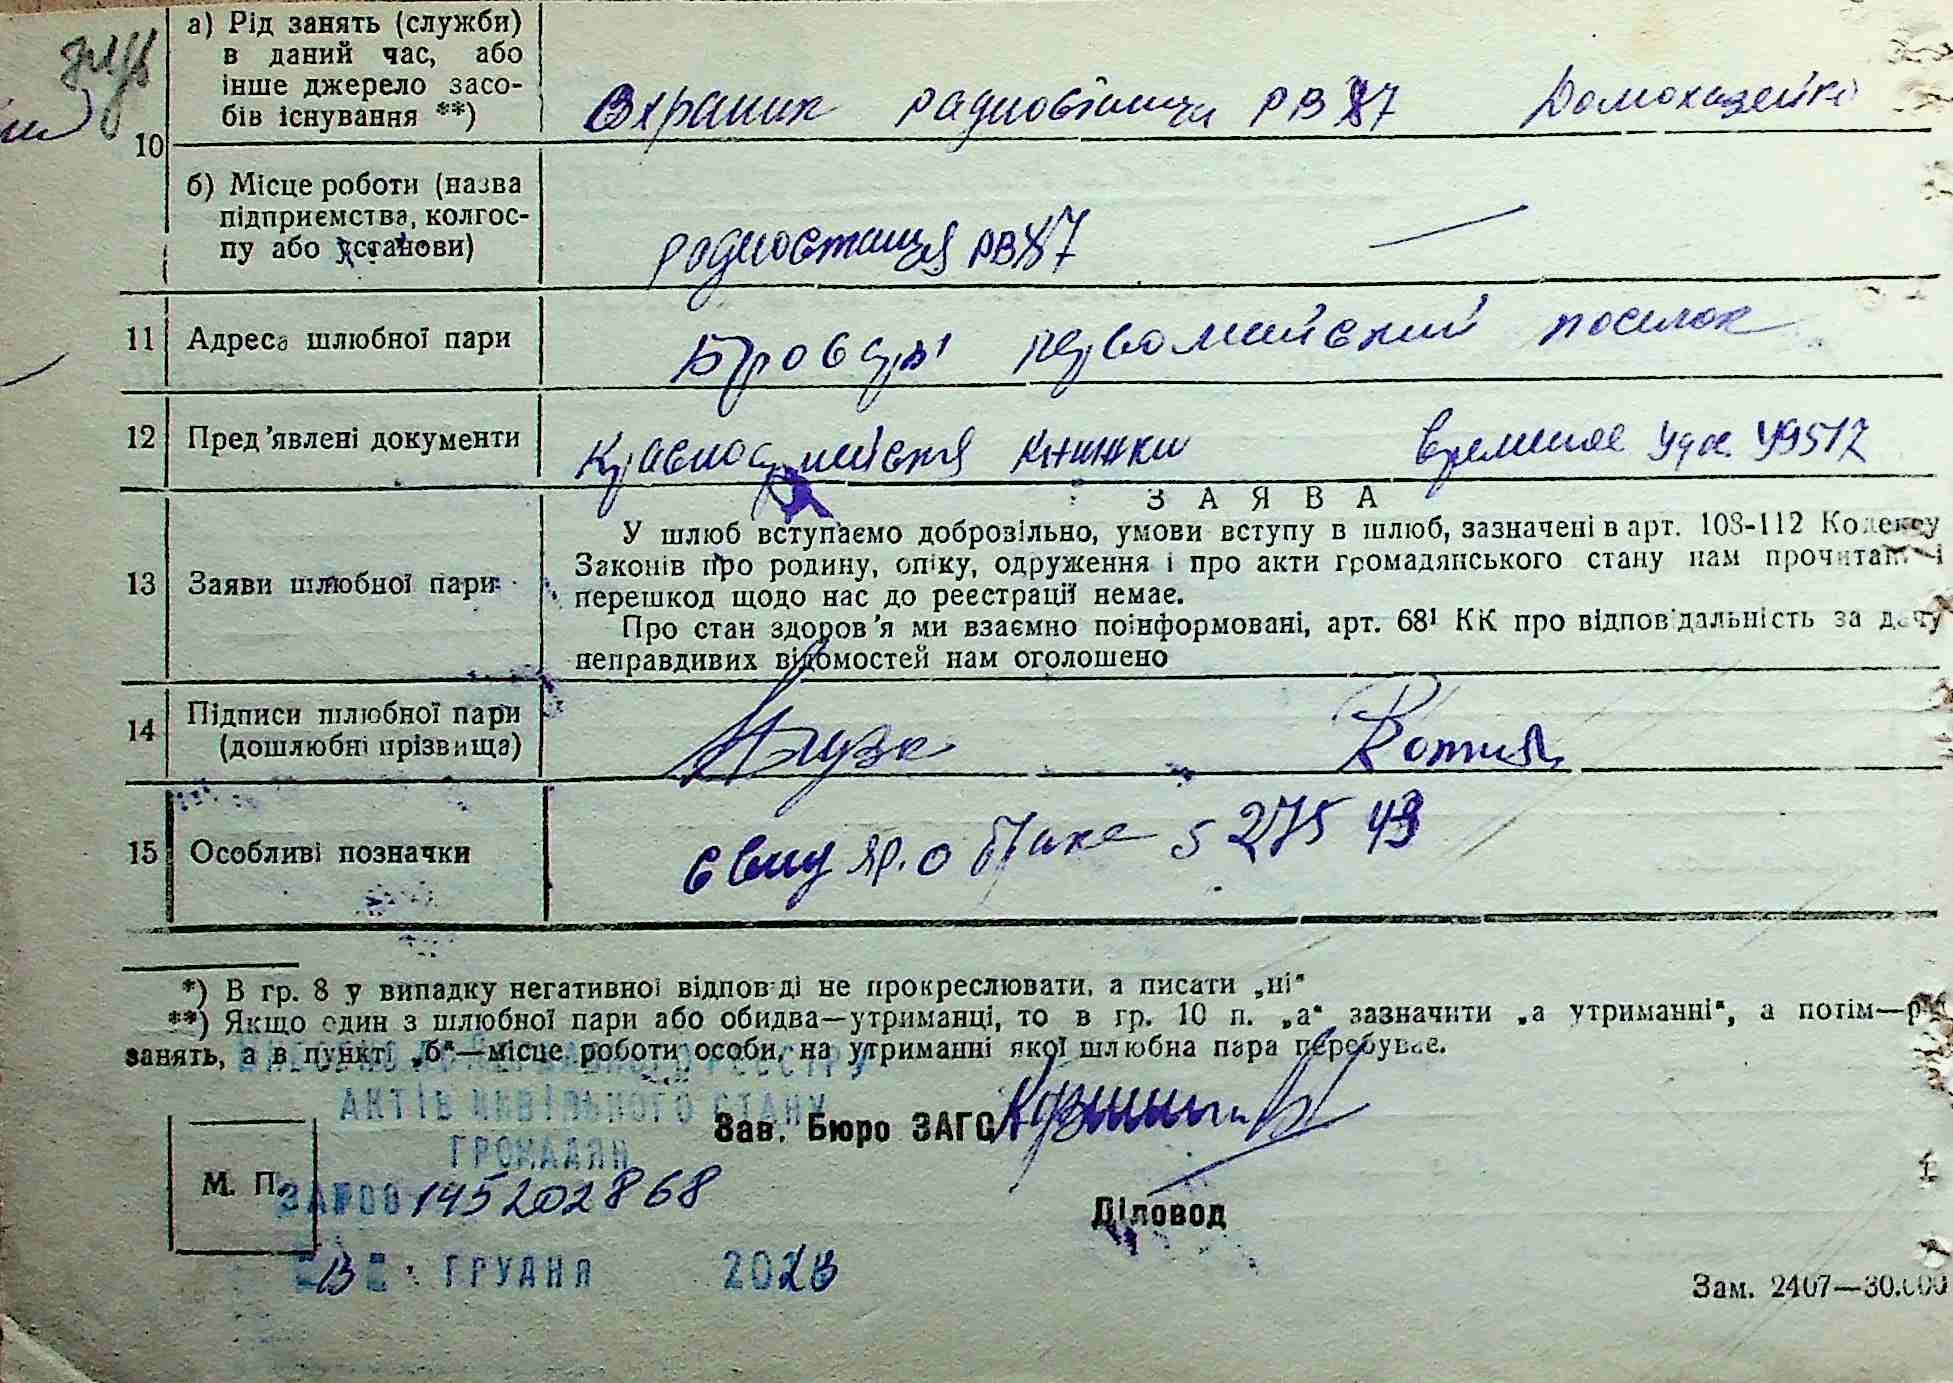 а) Рід занять (служби)
в даний час, або
інше джерело засо-
бів існування **)
Охраник радиостанции РВ 87 Домохазейка
10
б) Місце роботи (назва
підприємства, колгос-
пу або установи)
радиостанция РВ87 —
11 Адреса шлюбної пари
Бровары первомайский поселок
12 Пред'явлені документи
Красноармейская книжка времиное удос. 49517
З А Я В А
У шлюб вступаємо добровільно, умови вступу в шлюб, зазначені в арт. 108-112 Кодексу
Законів про родину, опіку, одруження і про акти громадянського стану нам прочитані і
перешкод щодо нас до реєстрації немає.
13 Заяви шлюбної пари
Про стан здоров'я ми взаємно поінформовані, арт. 68¹ КК про відповідальність за дачу
неправдивих відомостей нам оголошено
14 Підписи шлюбної пари
(дошлюбні прізвища)
15 Особливі позначки
о браке 5 275 43
*) В гр. 8 у випадку негативної відповіді не прокреслювати, а писати „ні“
**) Якщо один з шлюбної пари або обидва—утриманці, то в гр. 10 п. „а“ зазначити „а утриманні“, а потім—р
занять, а в пункті „б“—місце роботи особи, на утриманні якої шлюбна пара перебуває.
РЕЄСТРУ
АКТІВ ЦИВІЛЬНОГО СТАНУ
Зав. Бюро ЗАГС
ГРОМАДЯН
М. П.
145202868
Діловод
13 ГРУДНЯ 2023
Зам. 2407—30.000